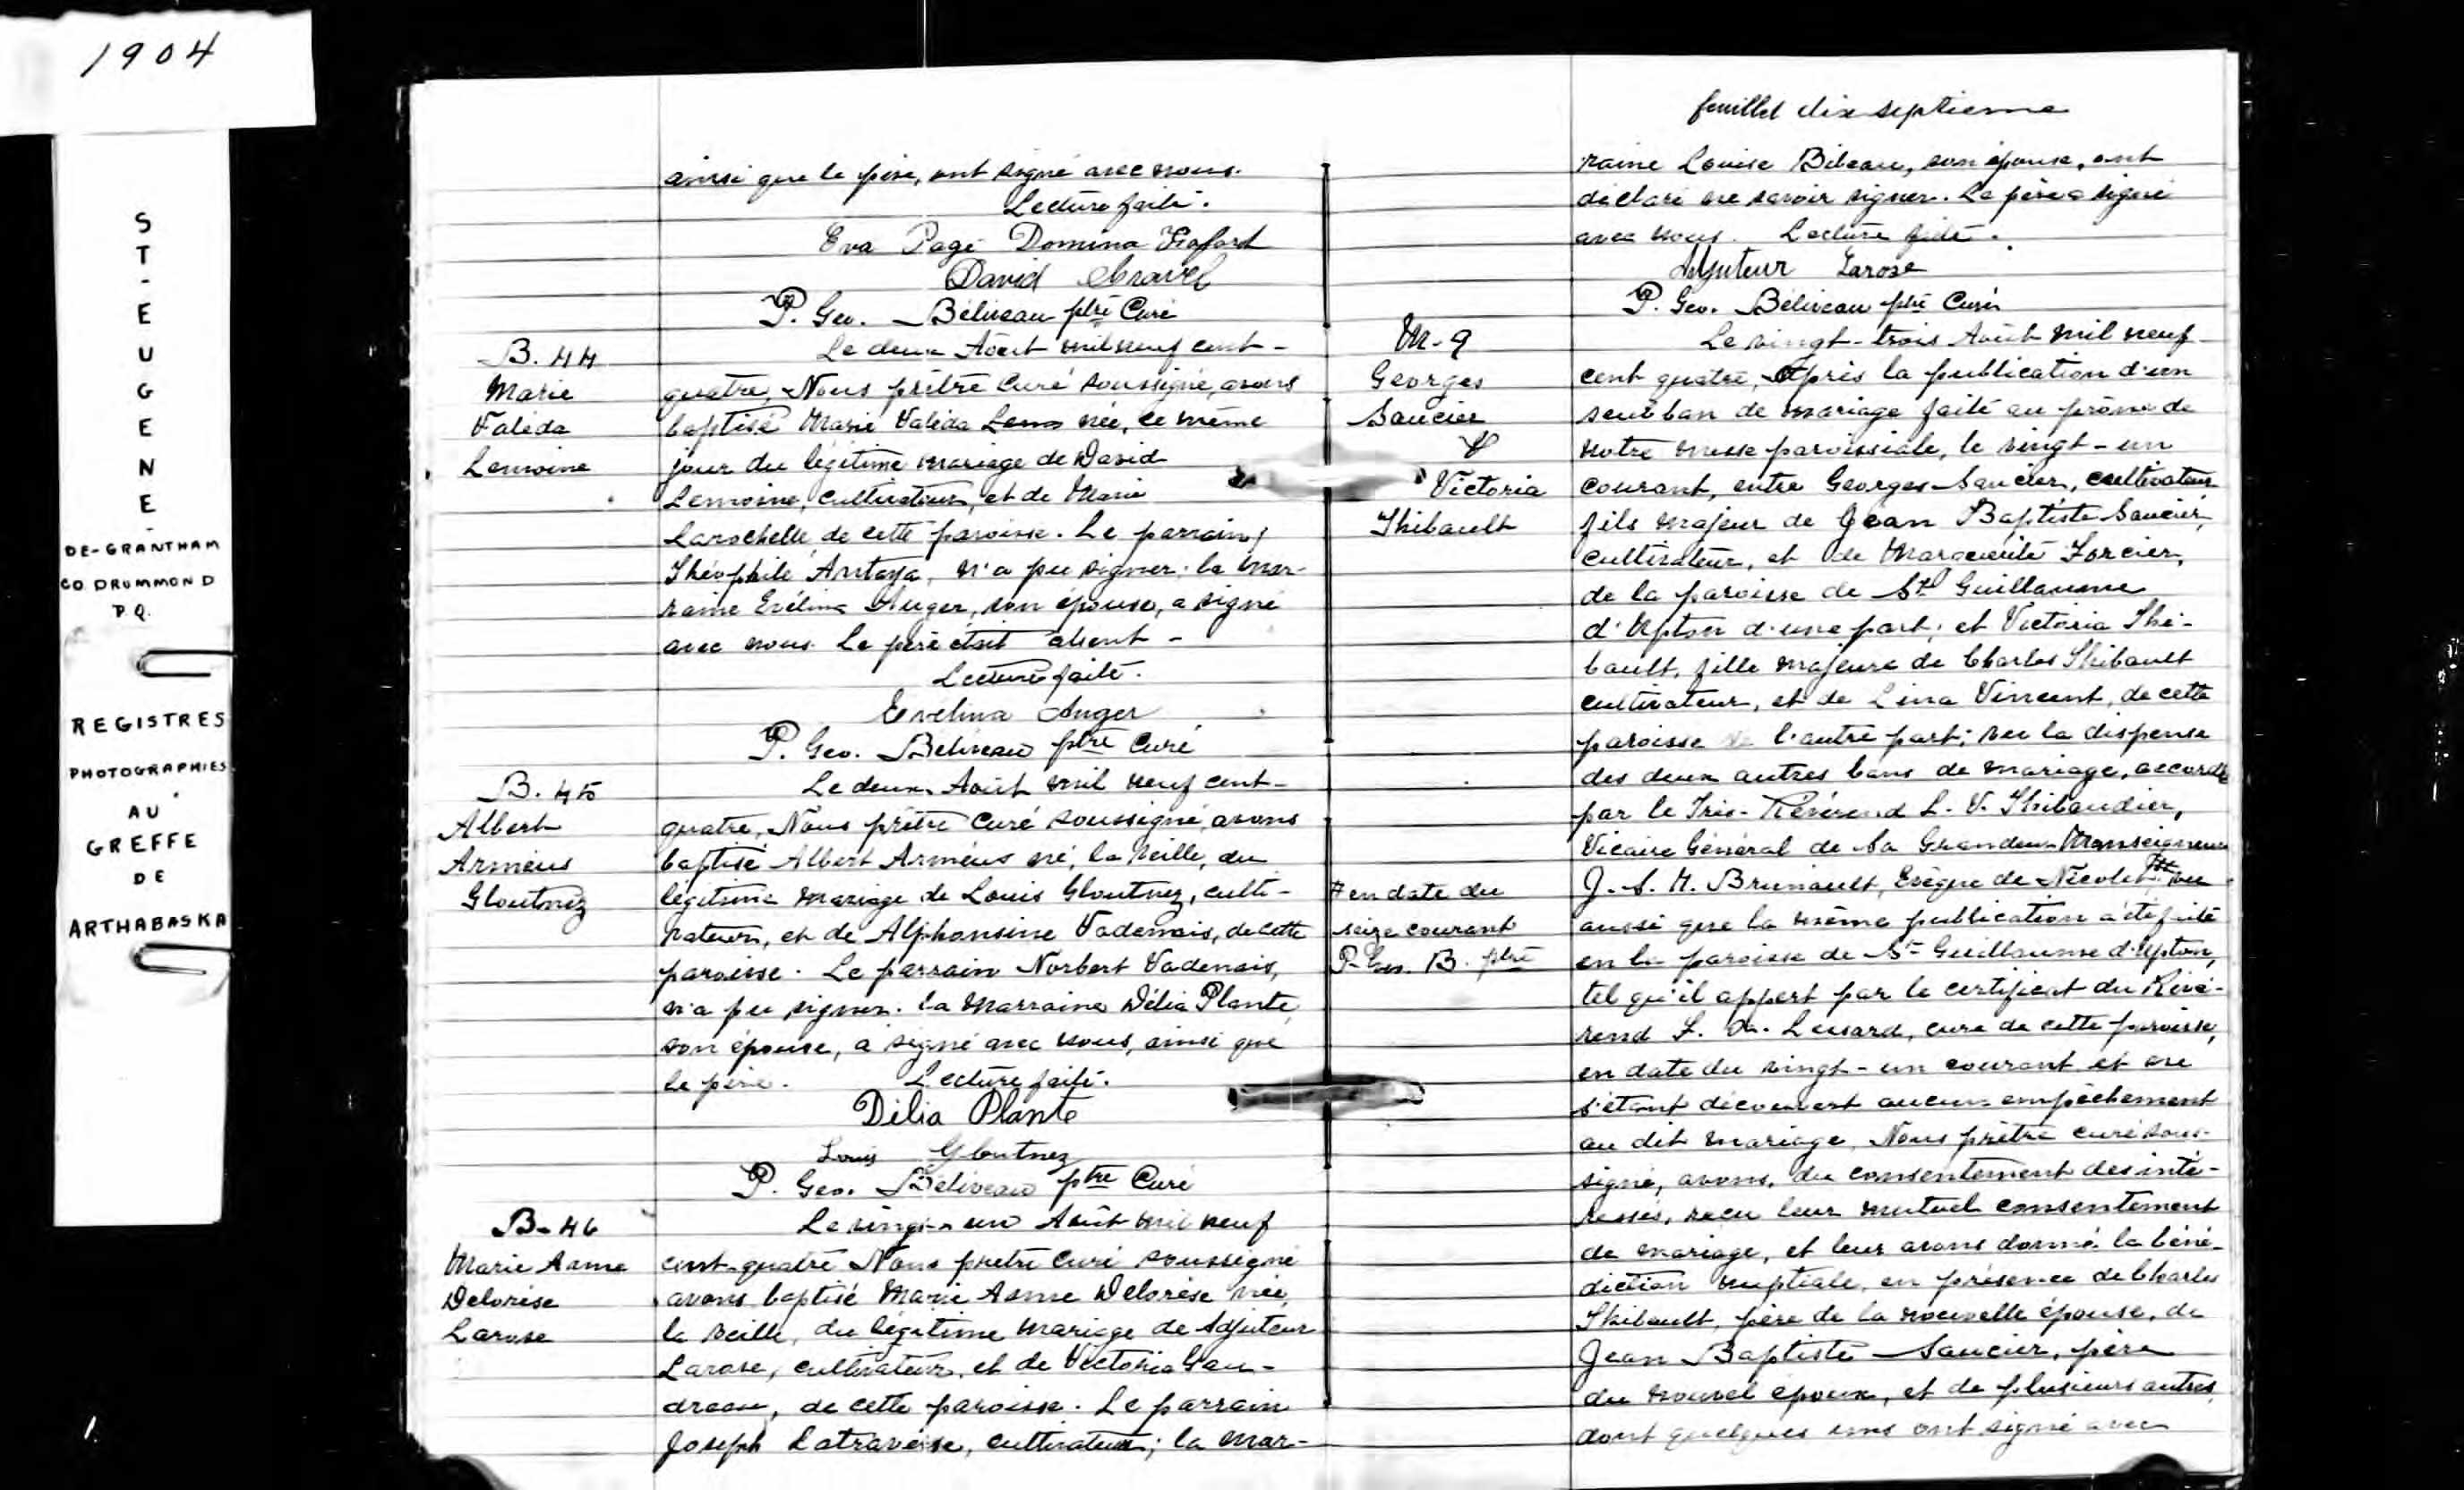 1904
ST-EUGENE-
DE-GRANTHAM
CO DRUMMOND
P.Q.
REGISTRES
PHOTOGRAPHIES
AU
GREFFE
DE
ARTHABASKA
ainsi que le père, ont signé avec nous.
Lecture faite.
Eva Pagé Domina
David
P. Geo. Béliveau ptre Curé
B. 44
Marie
Valéda
Lemoine
Le deux Août mil neuf cent-
quatre, Nous prêtre Curé soussigné, avons
baptisé Marie Valéda née, le même
jour du légitime mariage de David
Lemoine, cultivateur, et de Marie
Larochelle, de cette paroisse. Le parrain,
Théophile Antaya, n'a pu signer; la mar-
raine Evélina Auger, son épouse, a signé
avec nous. Le père était absent -
Lecture faite.
Evelina Auger
P. Geo. Béliveau ptre Curé
B. 45
Albert
Arméus
Gloutnez
Le deux Août mil neuf cent-
quatre, Nous prêtre Curé soussigné, avons
baptisé Albert Arméus né, la veille, du
légitime mariage de Louis Gloutnez, culti-
vateur, et de Alphonsine Vadenais, de cette
paroisse. Le parrain Norbert Vadenais,
n'a pu signer. la marraine Délia Plante,
son épouse, a signé avec nous, ainsi que
le père. Lecture faite.
Délia Plante
Louis Gloutnez
P. Geo. Béliveau ptre Curé
B- 46
Marie Anne
Delorèse
Larose
Le vingt-un Août mil neuf
cent-quatre Nous prêtre Curé soussigné
avons baptisé Marie Anne Delorèse née,
la veille, du légitime mariage de Adjuteur
Larose, cultivateur, et de Victoria Gau-
dreau, de cette paroisse. Le parrain
Joseph Latraverse, cultivateur; la mar-
feuillet dix septième
raine Louise Bibeau, son épouse, ont
déclaré ne savoir signer. Le père a signé
avec nous. Lecture faite.
Adjuteur Larose
P. Geo. Béliveau ptre Curé
M-9
Georges
Saucier
&
Victoria
Thibault
Le vingt-trois Août mil neuf
cent quatre, Après la publication d'un
seul ban de mariage faite au prône de
notre messe paroissiale, le vingt-un
courant, entre Georges Saucier, cultivateur
fils majeur de Jean Baptiste Saucier,
cultivateur, et de Marguerite Forcier,
de la paroisse de St Guillaume
d'Upton d'une part; et Victoria Thi-
bault, fille majeure de Charles Thibault
cultivateur, et de Lina Vincent, de cette
paroisse de l'autre part; vu la dispense
des deux autres bans de mariage, accordée
par le Très-Révérend L. V. Thibaudier,
Vicaire Général de Sa Grandeur Monseigneur
J. S. H. Brunault, Evêque de Nicolet # vu
# en date du
seize courant
P. Geo. B. ptre
aussi que la même publication a été faite
en la paroisse de St Guillaume d'Upton,
tel qu'il appert par le certificat du Révé-
rend Lessard, curé de cette paroisse,
en date du vingt-un courant et ne
s'étant découvert aucun empêchement
au dit mariage, Nous prêtre curé sous-
signé, avons, du consentement des inté-
ressés, reçu leur mutuel consentement
de mariage, et leur avons donné la béné-
diction nuptiale, en présence de Charles
Thibault, père de la nouvelle épouse, de
Jean Baptiste Saucier, père
du nouvel époux, et de plusieurs autres,
dont quelques uns ont signé avec